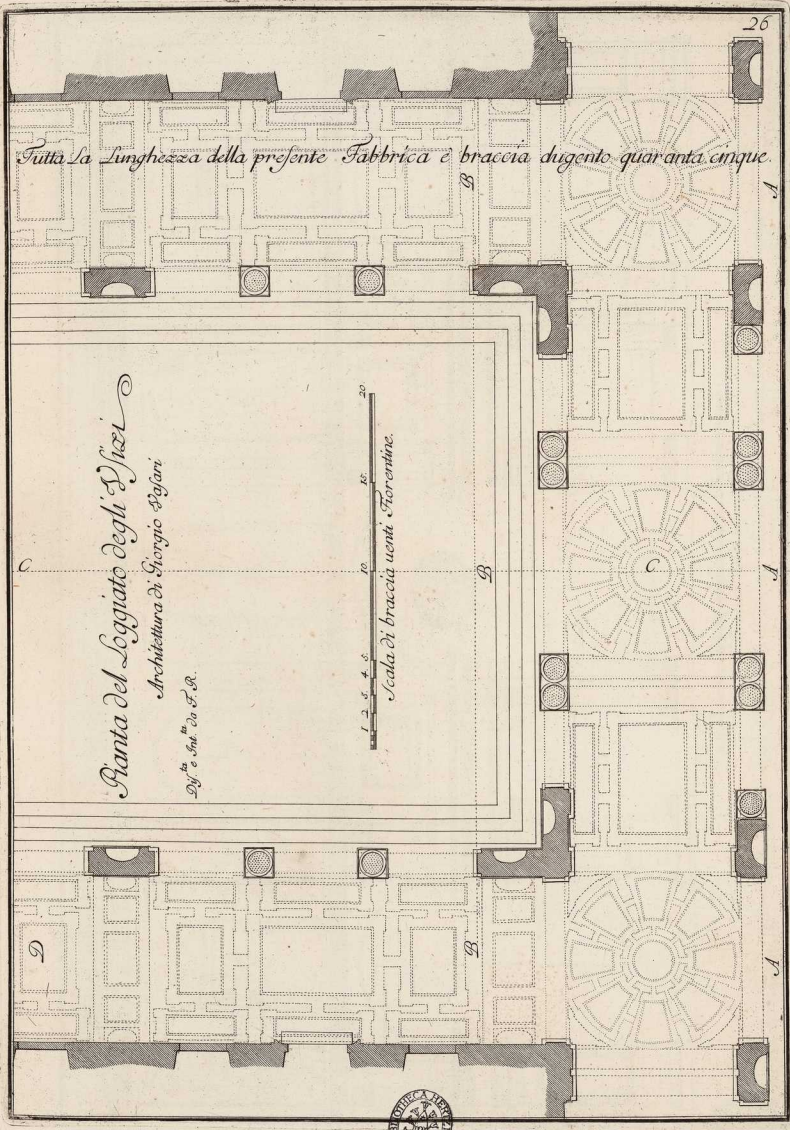 26
Tutta La Lunghezza della presente Fabbrica è braccia dugento quaranta cinque.
B
A
Pianta del Loggiato degli Vfizi
Architettura di Giorgio Vasari
Dis.ta e Int.ta da F. R.
1 2 3. 4. 5. 10. 15. 20.
Scala di braccia uenti Fiorentine.
C
B
C.
A
D
B.
A
BIBLIOTHECA HERTZ